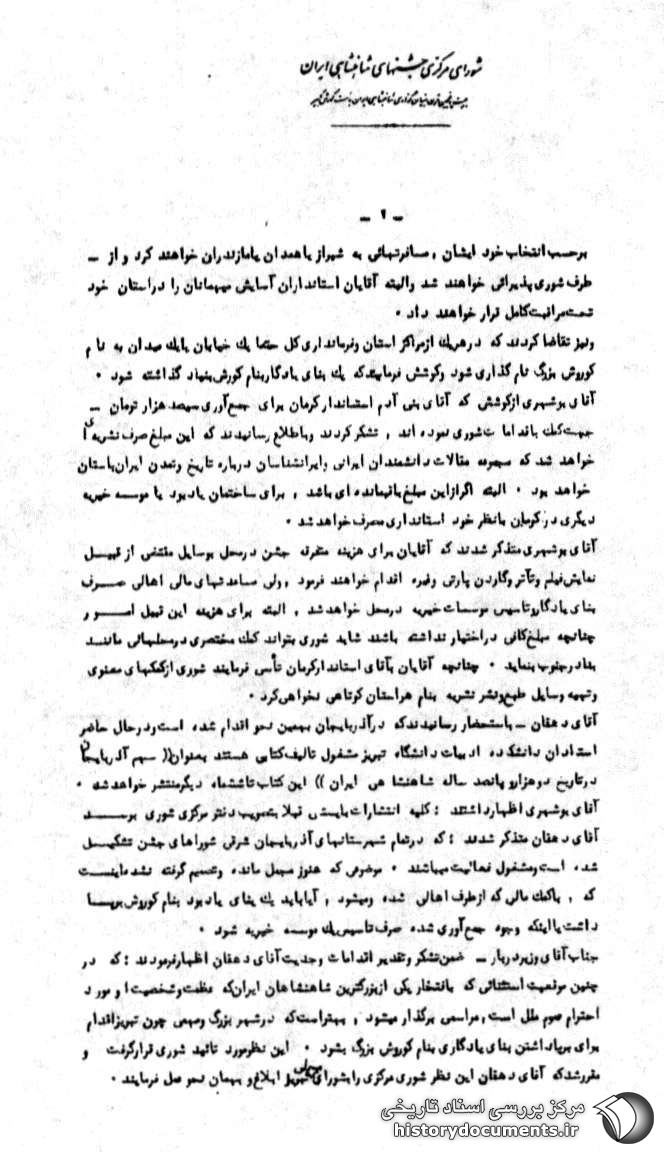 شورای مرکزی جشنهای شاهنشاهی ایران
ـ ۲ ـ
برحسب انتخاب خود ایشان ، مسافرتهائی به شیراز یا همدان یا مازندران خواهند کرد و از ـ
طرف شوری پذیرائی خواهند شد والبته آقایان استانداران آسایش میهمانان را دراستان خود
تحت مراقبت کامل قرار خواهند داد .
ونیز تقاضا کردند که درهریک ازمراکز استان وفرمانداری کل حتما یک خیابان یایک میدان به نام
کوروش بزرگ نام گذاری شود وکوشش فرمایند که یک بنای یادگار بنام کورش بنیاد گذاشته شود .
آقای بوشهری ازکوشش که آقای بنی آدم استاندار کرمان برای جمع آوری سیصد هزار تومان ـ
جهت کمک باقدامات شوری نموده اند ، تشکر کردند وباطلاع رسانیدند که این مبلغ صرف نشریه ای
خواهد شد که مجموعه مقالات دانشمندان ایرانی وایرانشناسان درباره تاریخ وتمدن ایران باستان
خواهد بود . البته اگرازاین مبلغ باقیمانده ای باشد ، برای ساختمان یادبود یا موسسه خیریه
دیگری در کرمان بانظر خود استانداری مصرف خواهد شد .
آقای بوشهری متذکر شدند که آقایان برای هزینه متفرقه جشن درمحل بوسایل مقتضی از قبیل
نمایش فیلم وتآتر وگاردن پارتی وغیره اقدام خواهند فرمود ، ولی مساعدتهای مالی اهالی صرف
بنای یادگار وتاسیس موسسات خیریه درمحل خواهد شد ، البته برای هزینه این قبیل امور
چنانچه مبلغ کافی دراختیار نداشته باشند شاید شوری بتواند کمک مختصری درمحلهائی مانند
بنادرجنوب بنماید . چنانچه آقایان بآقای استاندار کرمان تأسی فرمایند شوری ازکمکهای معنوی
وتهیه وسایل طبع ونشر نشریه بنام هراستان کوتاهی نخواهد کرد .
آقای دهقان ـ باستحضار رسانیدند که درآذربایجان بهمین نحو اقدام شده است ودرحال حاضر
استادان دانشکده ادبیات دانشگاه تبریز مشغول تالیف کتابی هستند بعنوان (( سهم آذربایجان
درتاریخ دوهزار و پانصد ساله شاهنشاهی ایران )) این کتاب تاششماه دیگر منتشر خواهد شد .
آقای بوشهری اظهارداشتند : کلیه انتشارات بایستی قبلا بتصویب دفتر مرکزی شوری برسد
آقای دهقان متذکر شدند : که درتمام شهرستانهای آذربایجان شرقی شوراهای جشن تشکیل
شده است ومشغول فعالیت میباشند . موضوعی که هنوز مجمل مانده وتصمیم گرفته نشده اینست
که ، باکمک مالی که ازطرف اهالی شده ومیشود ، آیاباید یک بنای یادبود بنام کوروش برپا
داشت یااینکه وجوه جمع آوری شده صرف تاسیس یک موسسه خیریه شود .
جناب آقای وزیر دربار ـ ضمن تشکر وتقدیر اقدامات وجدیت آقای دهقان اظهارفرمودند : که در
چنین موقعیت استثنائی که بافتخار یکی ازبزرگترین شاهنشاهان ایران که عظمت وشخصیت او مورد
احترام عموم ملل است ، مراسمی برگذار میشود ، بهتراست که درشهر بزرگ ومهمی چون تبریزاقدام
برای برپاداشتن بنای یادگاری بنام کوروش بزرگ بشود . این نظرمورد تائید شوری قرارگرفت و
مقررشد که آقای دهقان این نظر شوری مرکزی را بشورای تبریز ابلاغ و بهمان نحو عمل فرمایند .
مرکز بررسی اسناد تاریخی
historydocuments.ir